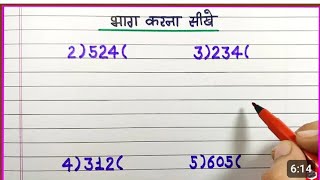 भाग करना सीखे
2)524( 3)234(
4)312( 5)605(
6:14